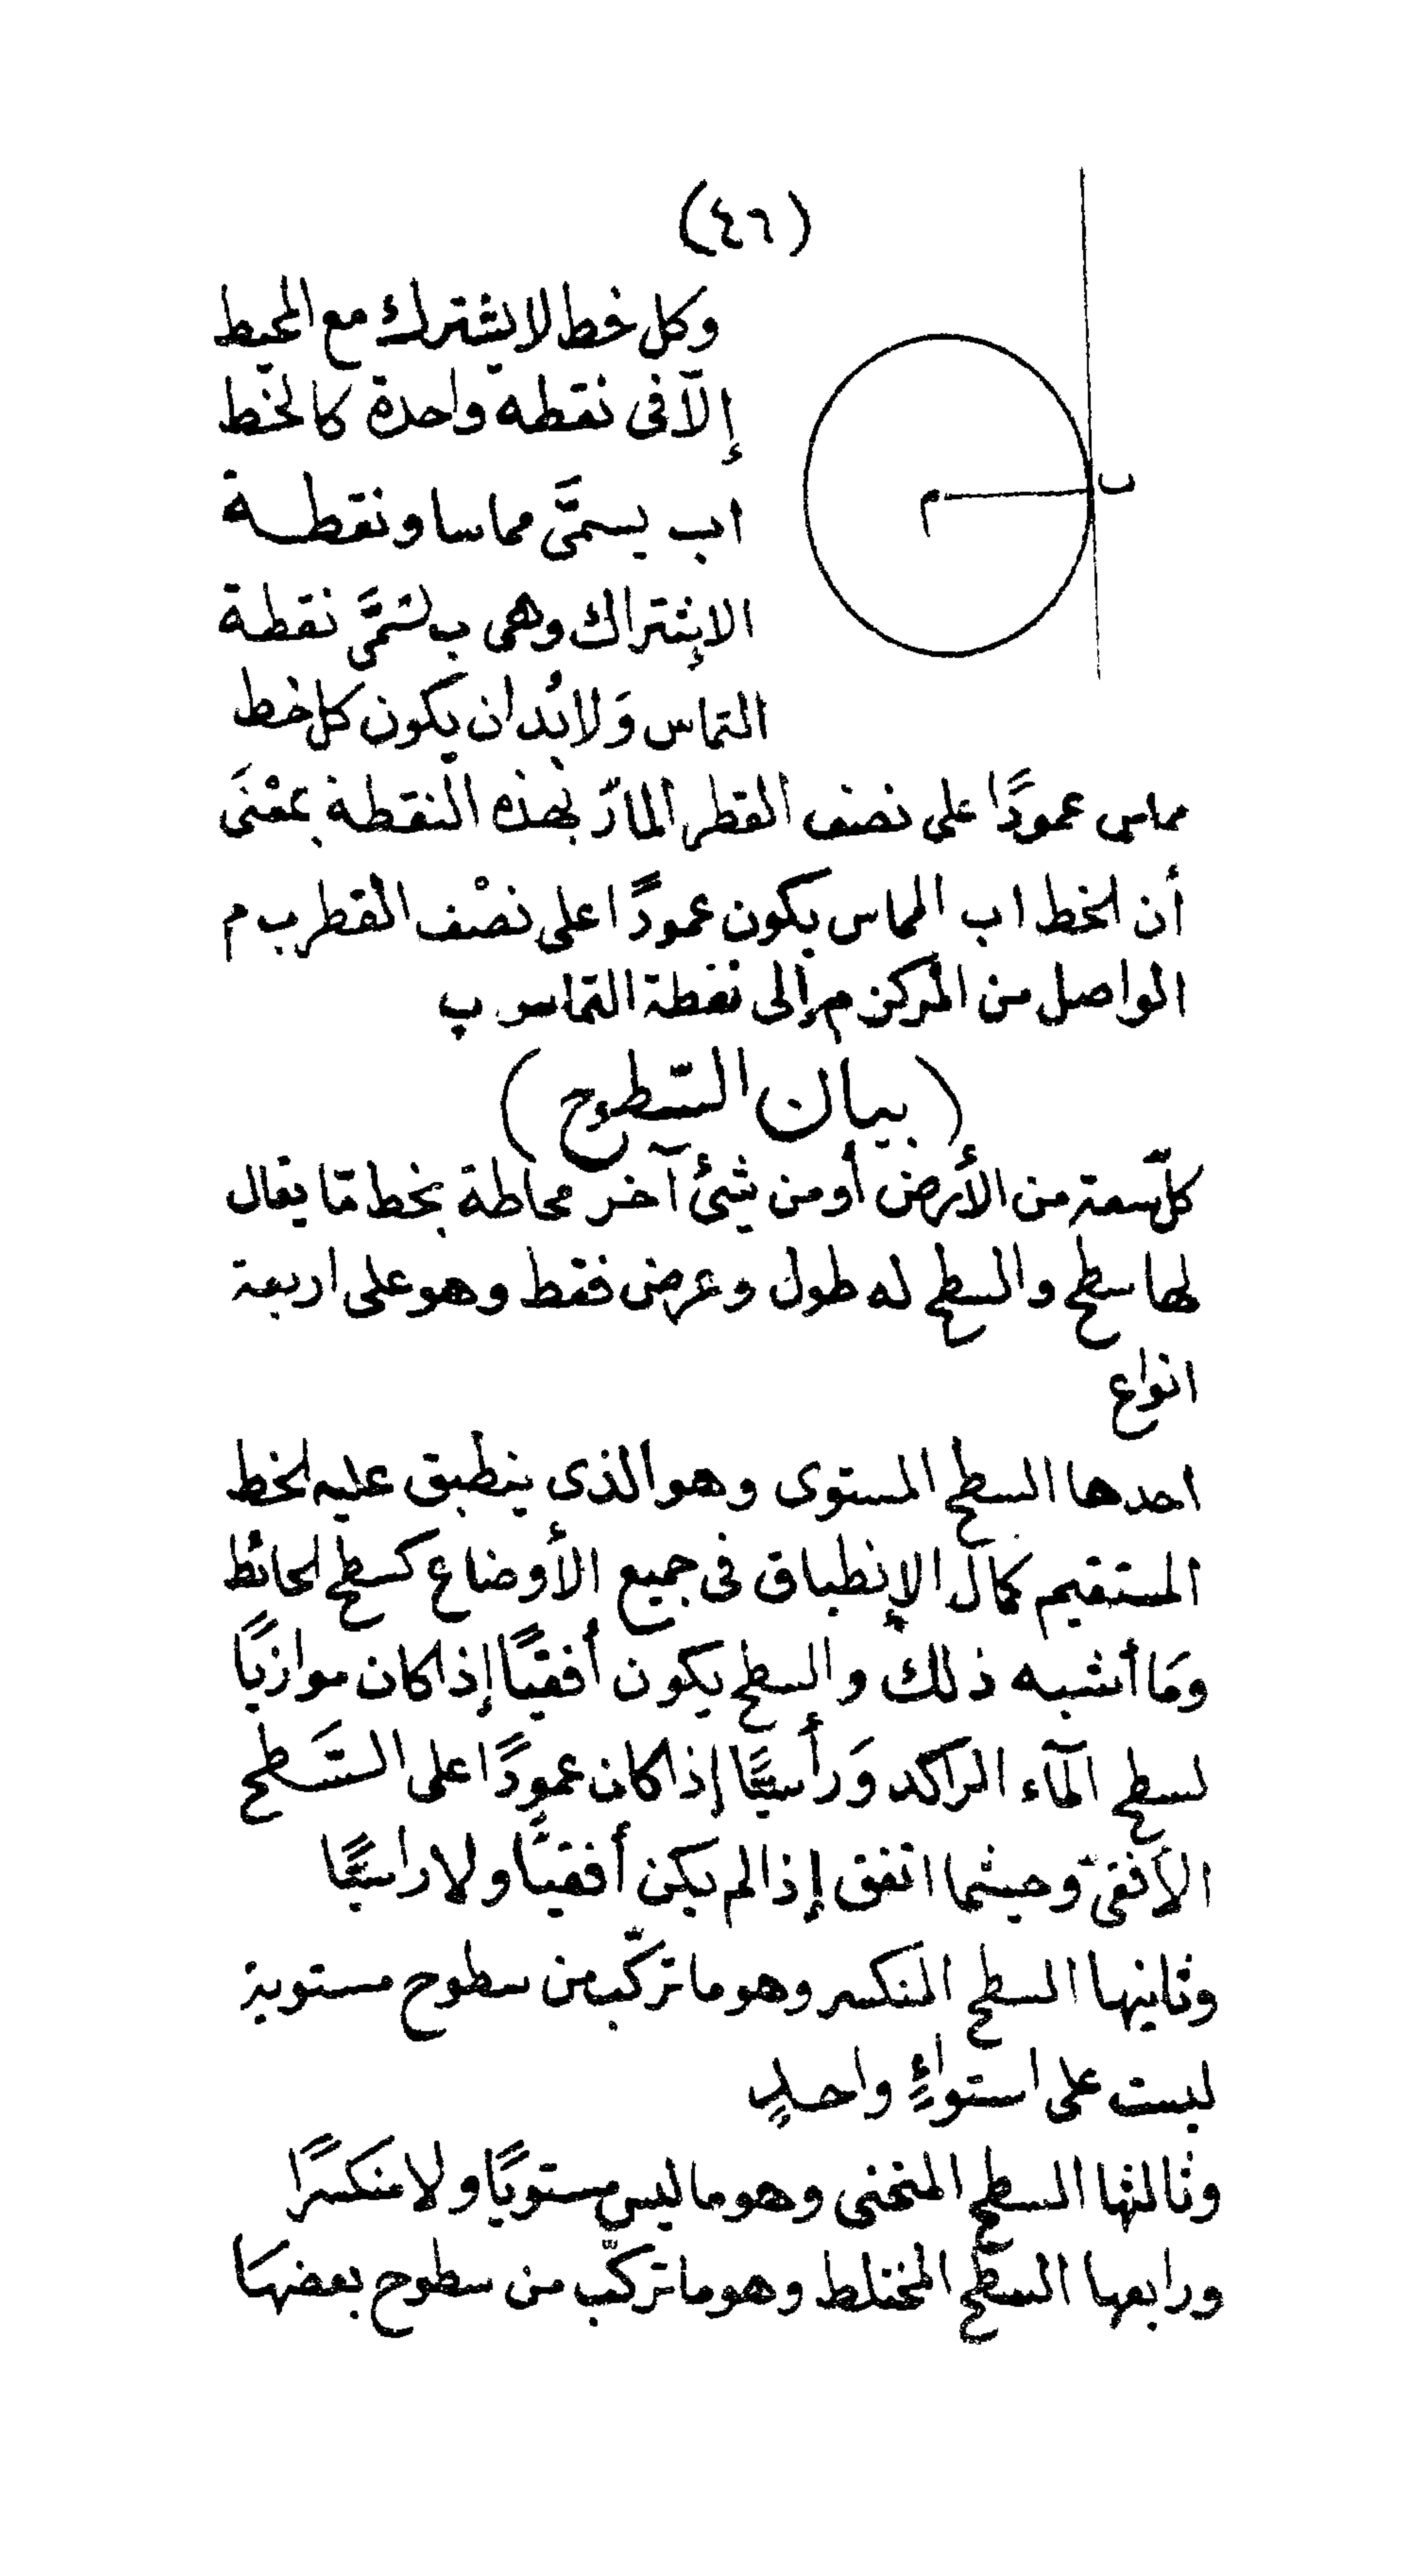 (٤٦)
وكل خط لا يشترك مع المحيط
إلّا فى نقطه واحدة كالخط
اب يسمَّى مماسا ونقطة
الإشتراك وهى ب تسَمَّى نقطة
التماس وَلا بُد ان يكون كل خط
مماس عمودًا على نصف القطر المارّ بهذه النقطة بمعْنَى
أن الخط اب المماس يكون عمودًا على نصْف القطر ب م
الواصل من المركز م إلى نقطة التماس ب
(بيان السّطوح)
كلّ سعة من الأرض أو من شئ آخر محاطة بخط مّا يقال
لها سطح والسطح له طول وعرض فقط وهو على اربعة
انواع
احدها السطح المستوى وهو الذى ينطبق عليه الخط
المستقيم كمال الإنطباق فى جميع الأوضاع كسطح الحائط
وَما أشبه ذلك والسطح يكون أفقيًّا إذا كان موازيًا
لسطح المآء الراكد وَرأسيًّا إذا كان عمودًا على السَّطح
الأفقىّ وحيثما اتفق إذا لم يكن أفقيًّا ولا راسيًّا
وثانيها السطح المنكسر وهو ما تركّب من سطوح مستوية
ليست على استواءٍ واحدٍ
وثالثها السطح المنحنى وهو ما ليس مستويًا ولا منكسرًا
ورابعها السّطح المختلط وهو ما تركّب من سطوح بعضهَا
م
ب